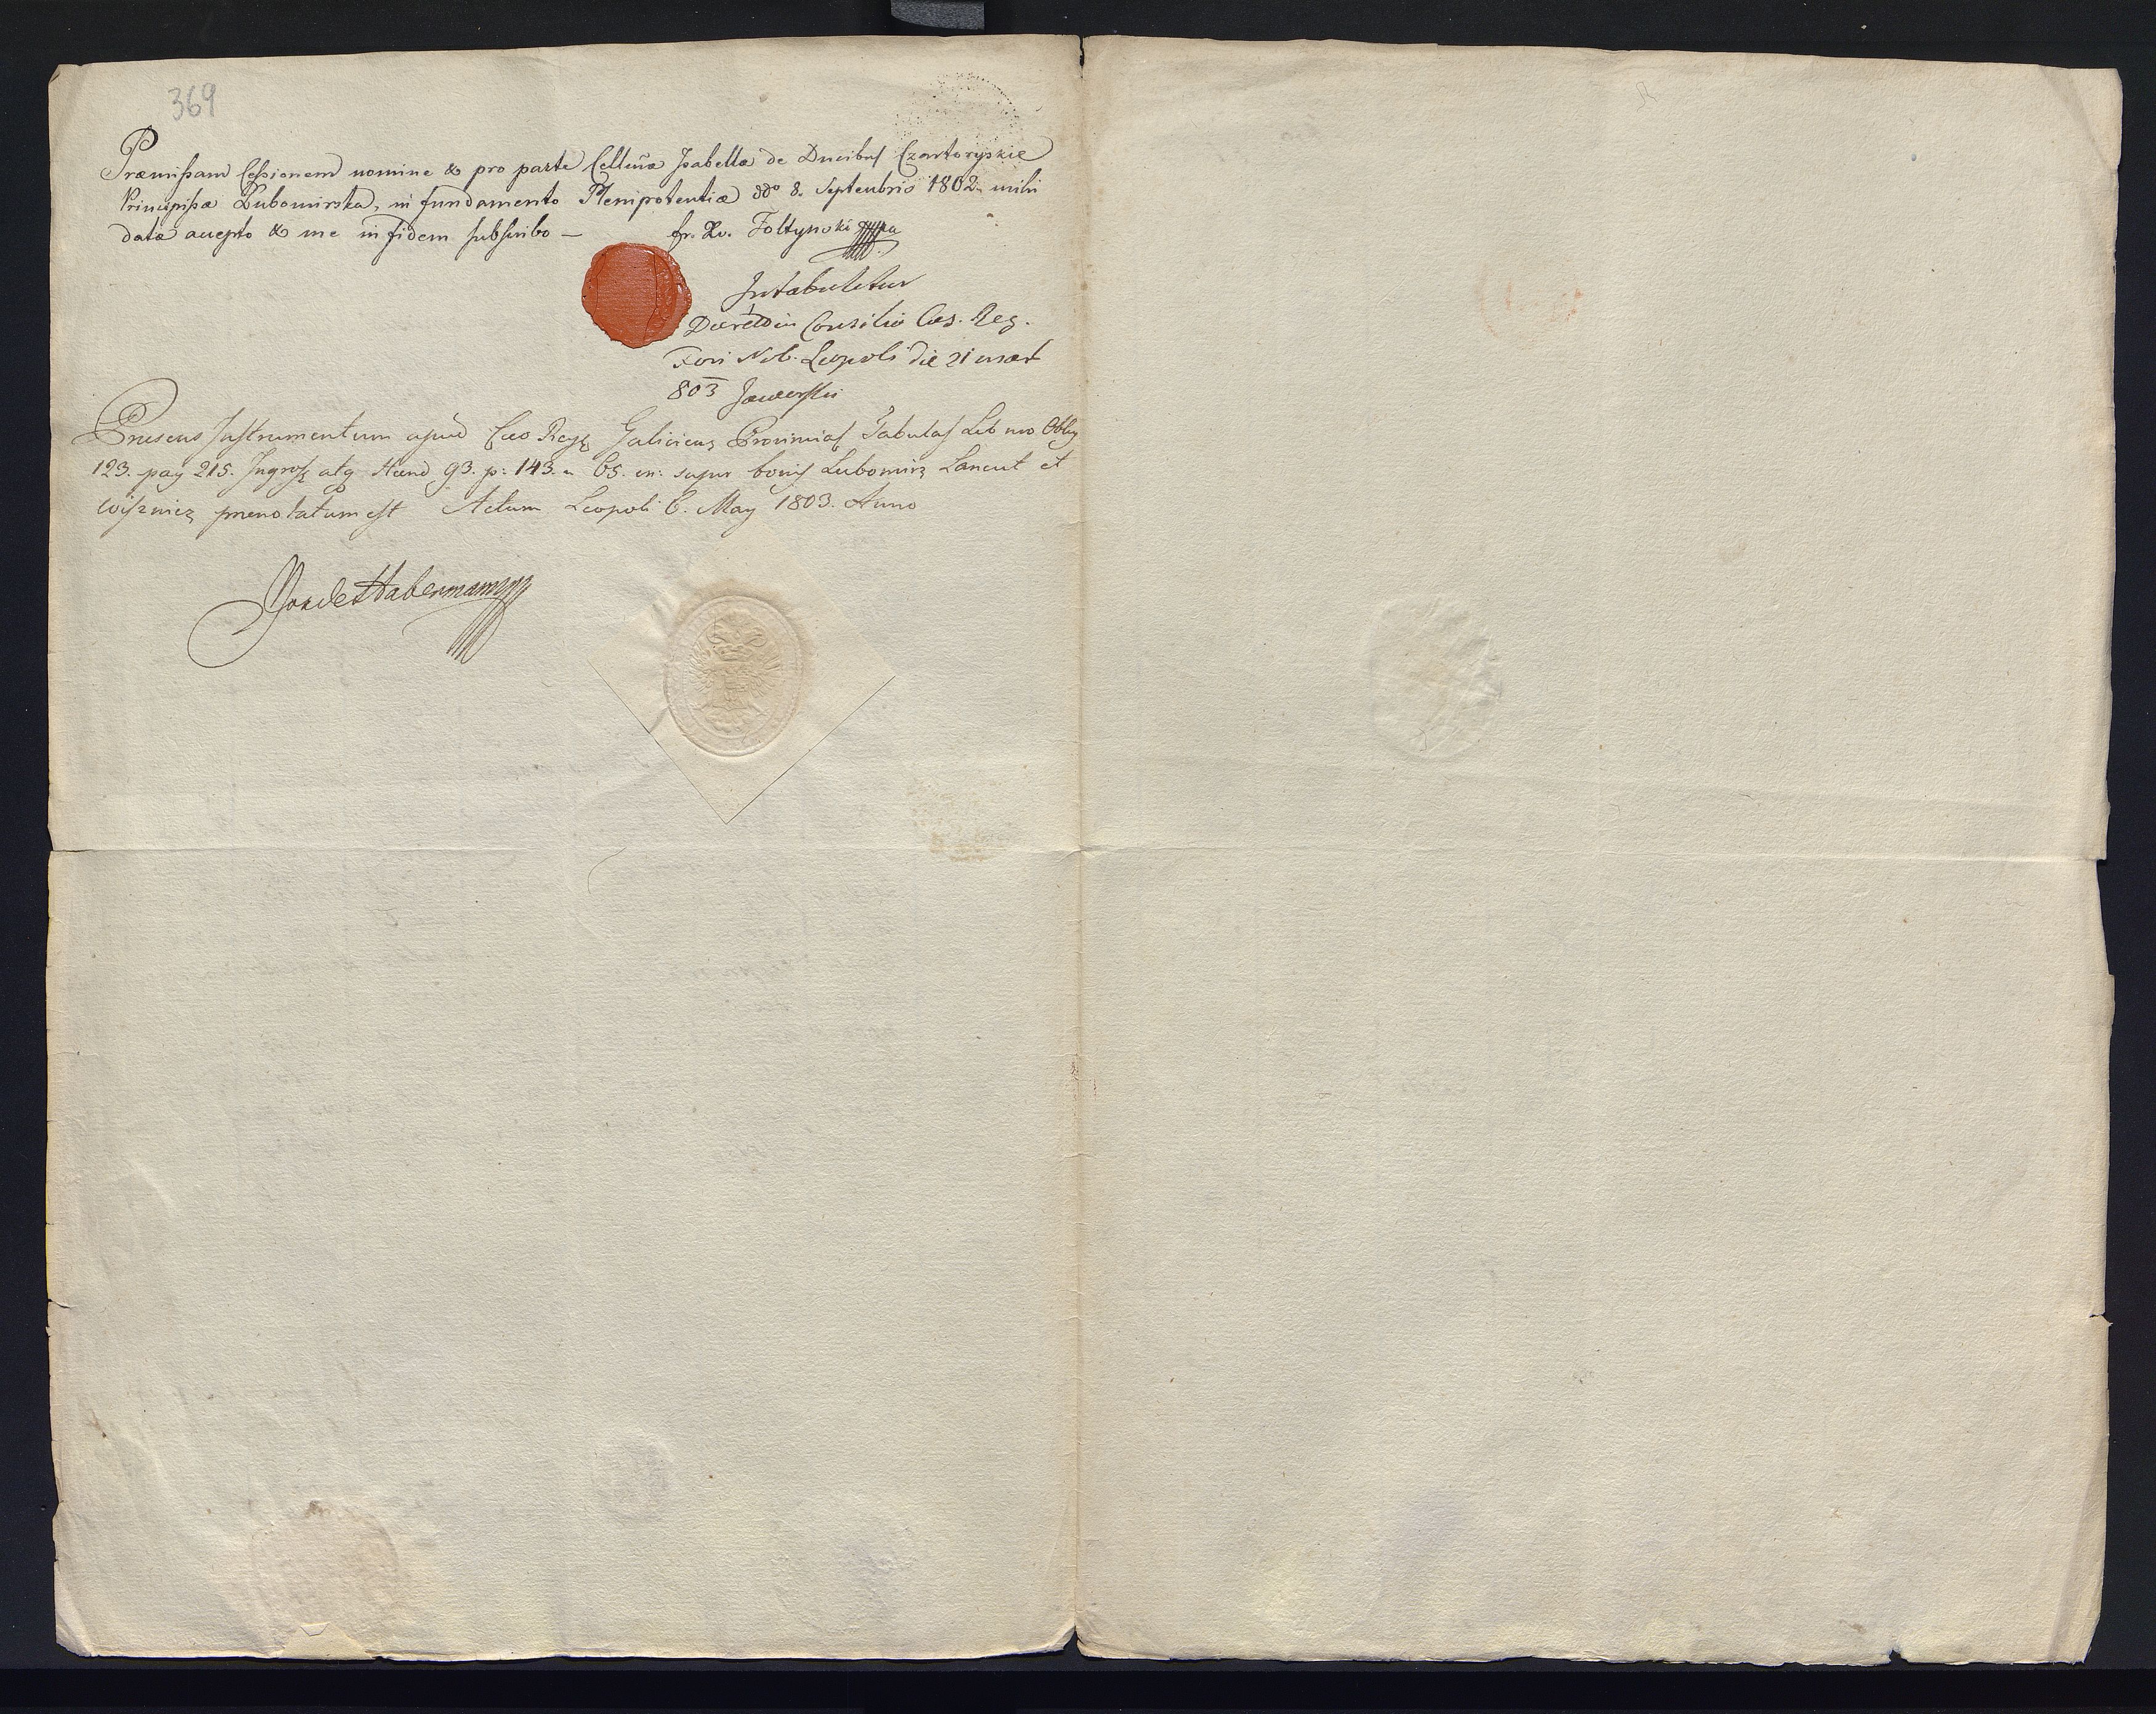 369
Præmissam Cessionem nomine & pro parte Cellmæ Isabellæ de Ducibus Czartoryskie
Principissæ Lubomirska, in fundamento Plenipotentiæ ddo 8. Septembris 1802 mihi
datæ accepto & me in fidem subscribo —
fr. Xv. Foltynski
Intabuletur
Decret in Consilio Cæs. Reg.
Fori Nob. Leopoli die 21 mart
803 Jaworski
Præsens Instrumentum apud Cæo Reg Galiciens Provincial Tabulas Lib nro Oblig
123. pag 215. Ingross atq Haered 93. p: 143. n 65. on: super bonis Lubomirz Lancut et
Wisznicz prænotatum est Actum Leopoli 6. May 1803. Anno
Habermann